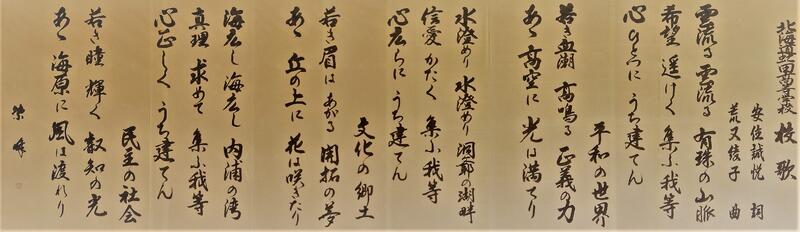 北海道虻田高等学校 校歌
安住誠悦 詞
荒又綾子 曲
雲流る 雲流る 有珠の山脈
希望遥けく 集ふ我等
心ひとつに うち建てん
平和の世界
若き血潮 高鳴る 正義の力
あゝ 高空に 光は満てり
水澄めり 水澄めり 洞爺の湖畔
信愛かたく 集ふ我等
心広らに うち建てん
文化の郷土
若き眉は あがる 開拓の夢
あゝ 丘の上に 花は咲きたり
海広し 海広し 内浦の湾
真理 求めて 集ふ我等
心正しく うち建てん
民主の社会
若き瞳 輝く 叡知の光
あゝ 海原に 風は渡れり